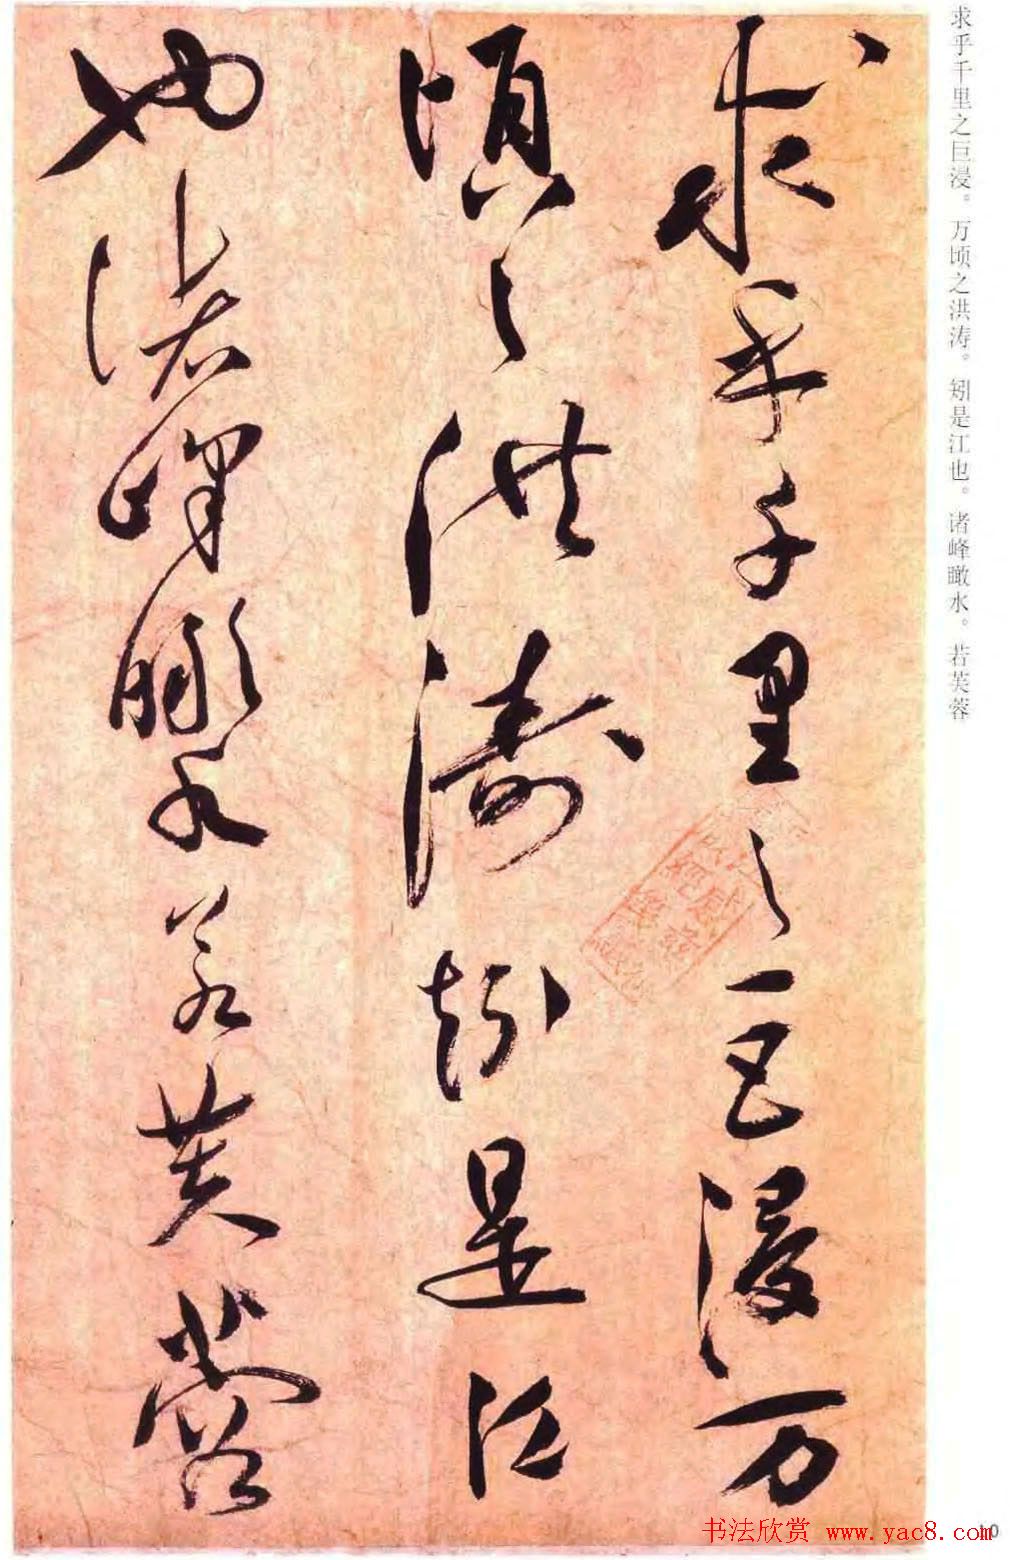 求乎千里之巨浸万
頃之洪濤矧是江
也諸峰瞰水若芙蓉
求乎千里之巨浸。万顷之洪涛。矧是江也。诸峰瞰水。若芙蓉
书法欣赏 www.yac8.com
10